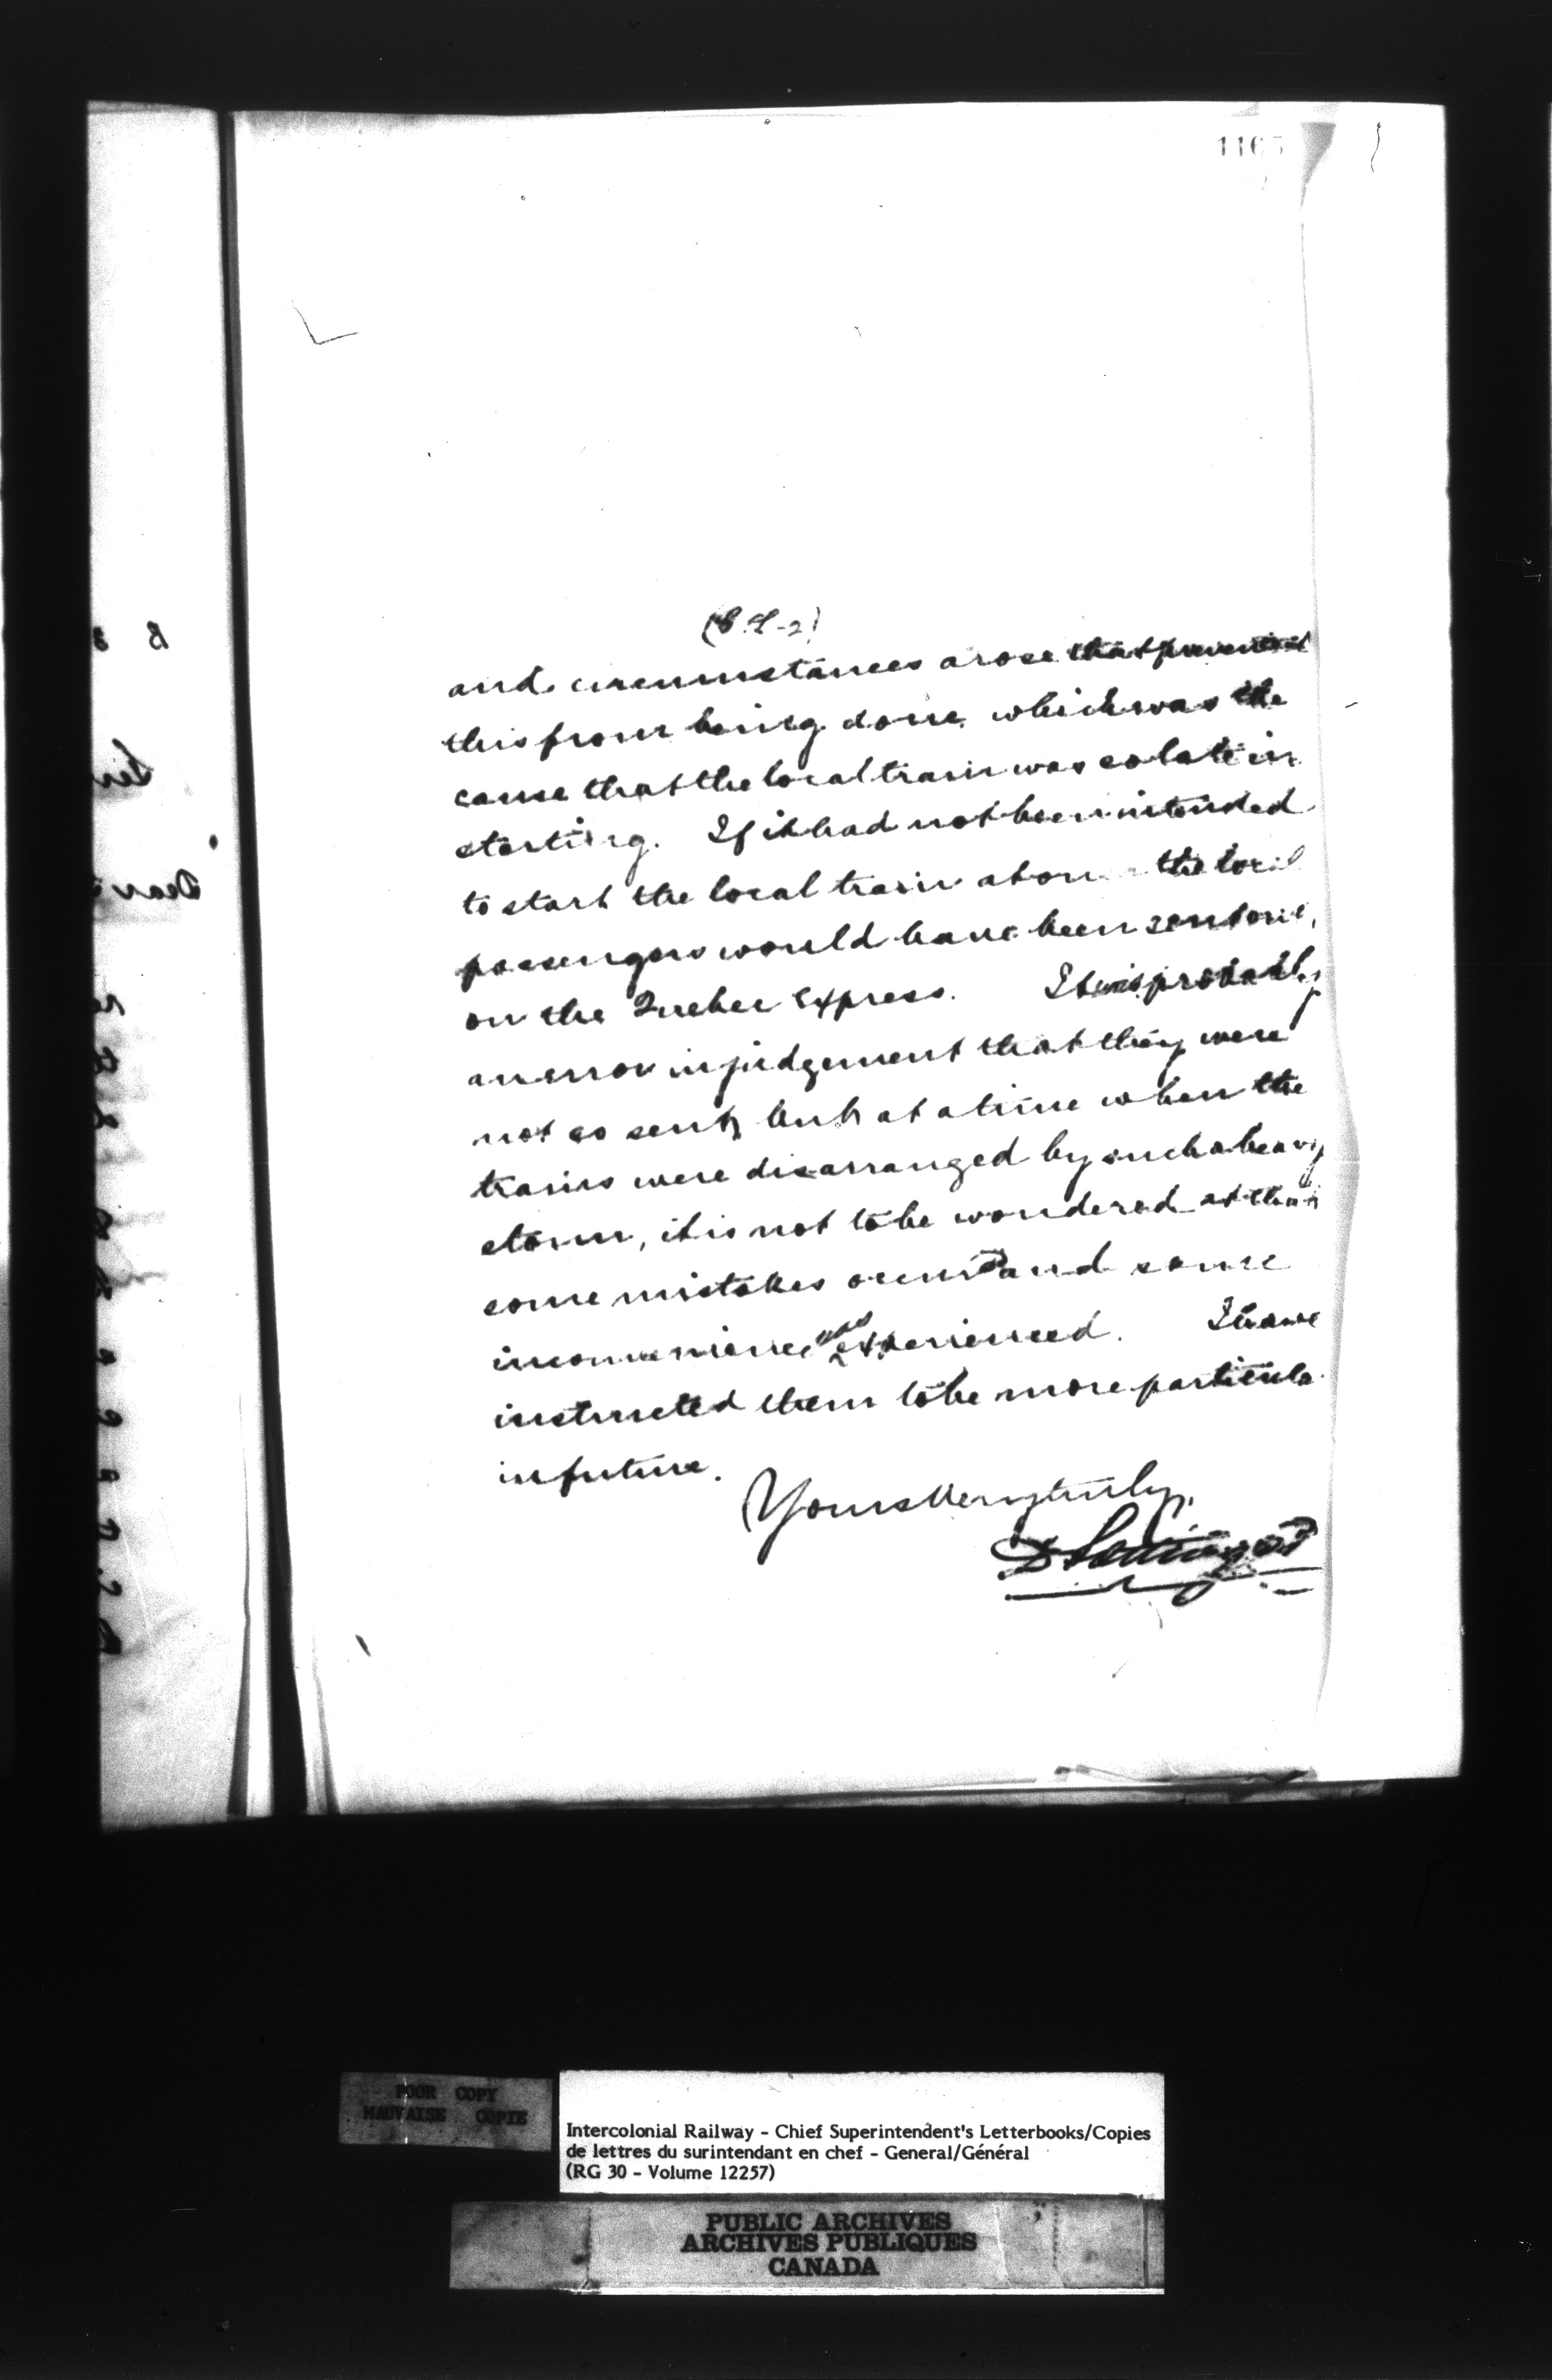 1165
(S.L-2)
and circumstances arose that prevented
this from being done, which was the
cause that the local train was so late in
starting. If it had not been intended
to start the local train at once the local
passengers would have been sent on
on the Quebec Express. It was probably
an error in judgement that they were
not so sent, but at a time when the
trains were disarranged by such a heavy
storm, it is not to be wondered at that
some mistakes occurred and some
inconvenience was experienced. I have
instructed them to be more particular
in future.
Yours very truly,
D Pottinger
POOR COPY
MAUVAISE COPIE
Intercolonial Railway - Chief Superintendent's Letterbooks/Copies
de lettres du surintendant en chef - General/Général
(RG 30 - Volume 12257)
PUBLIC ARCHIVES
ARCHIVES PUBLIQUES
CANADA